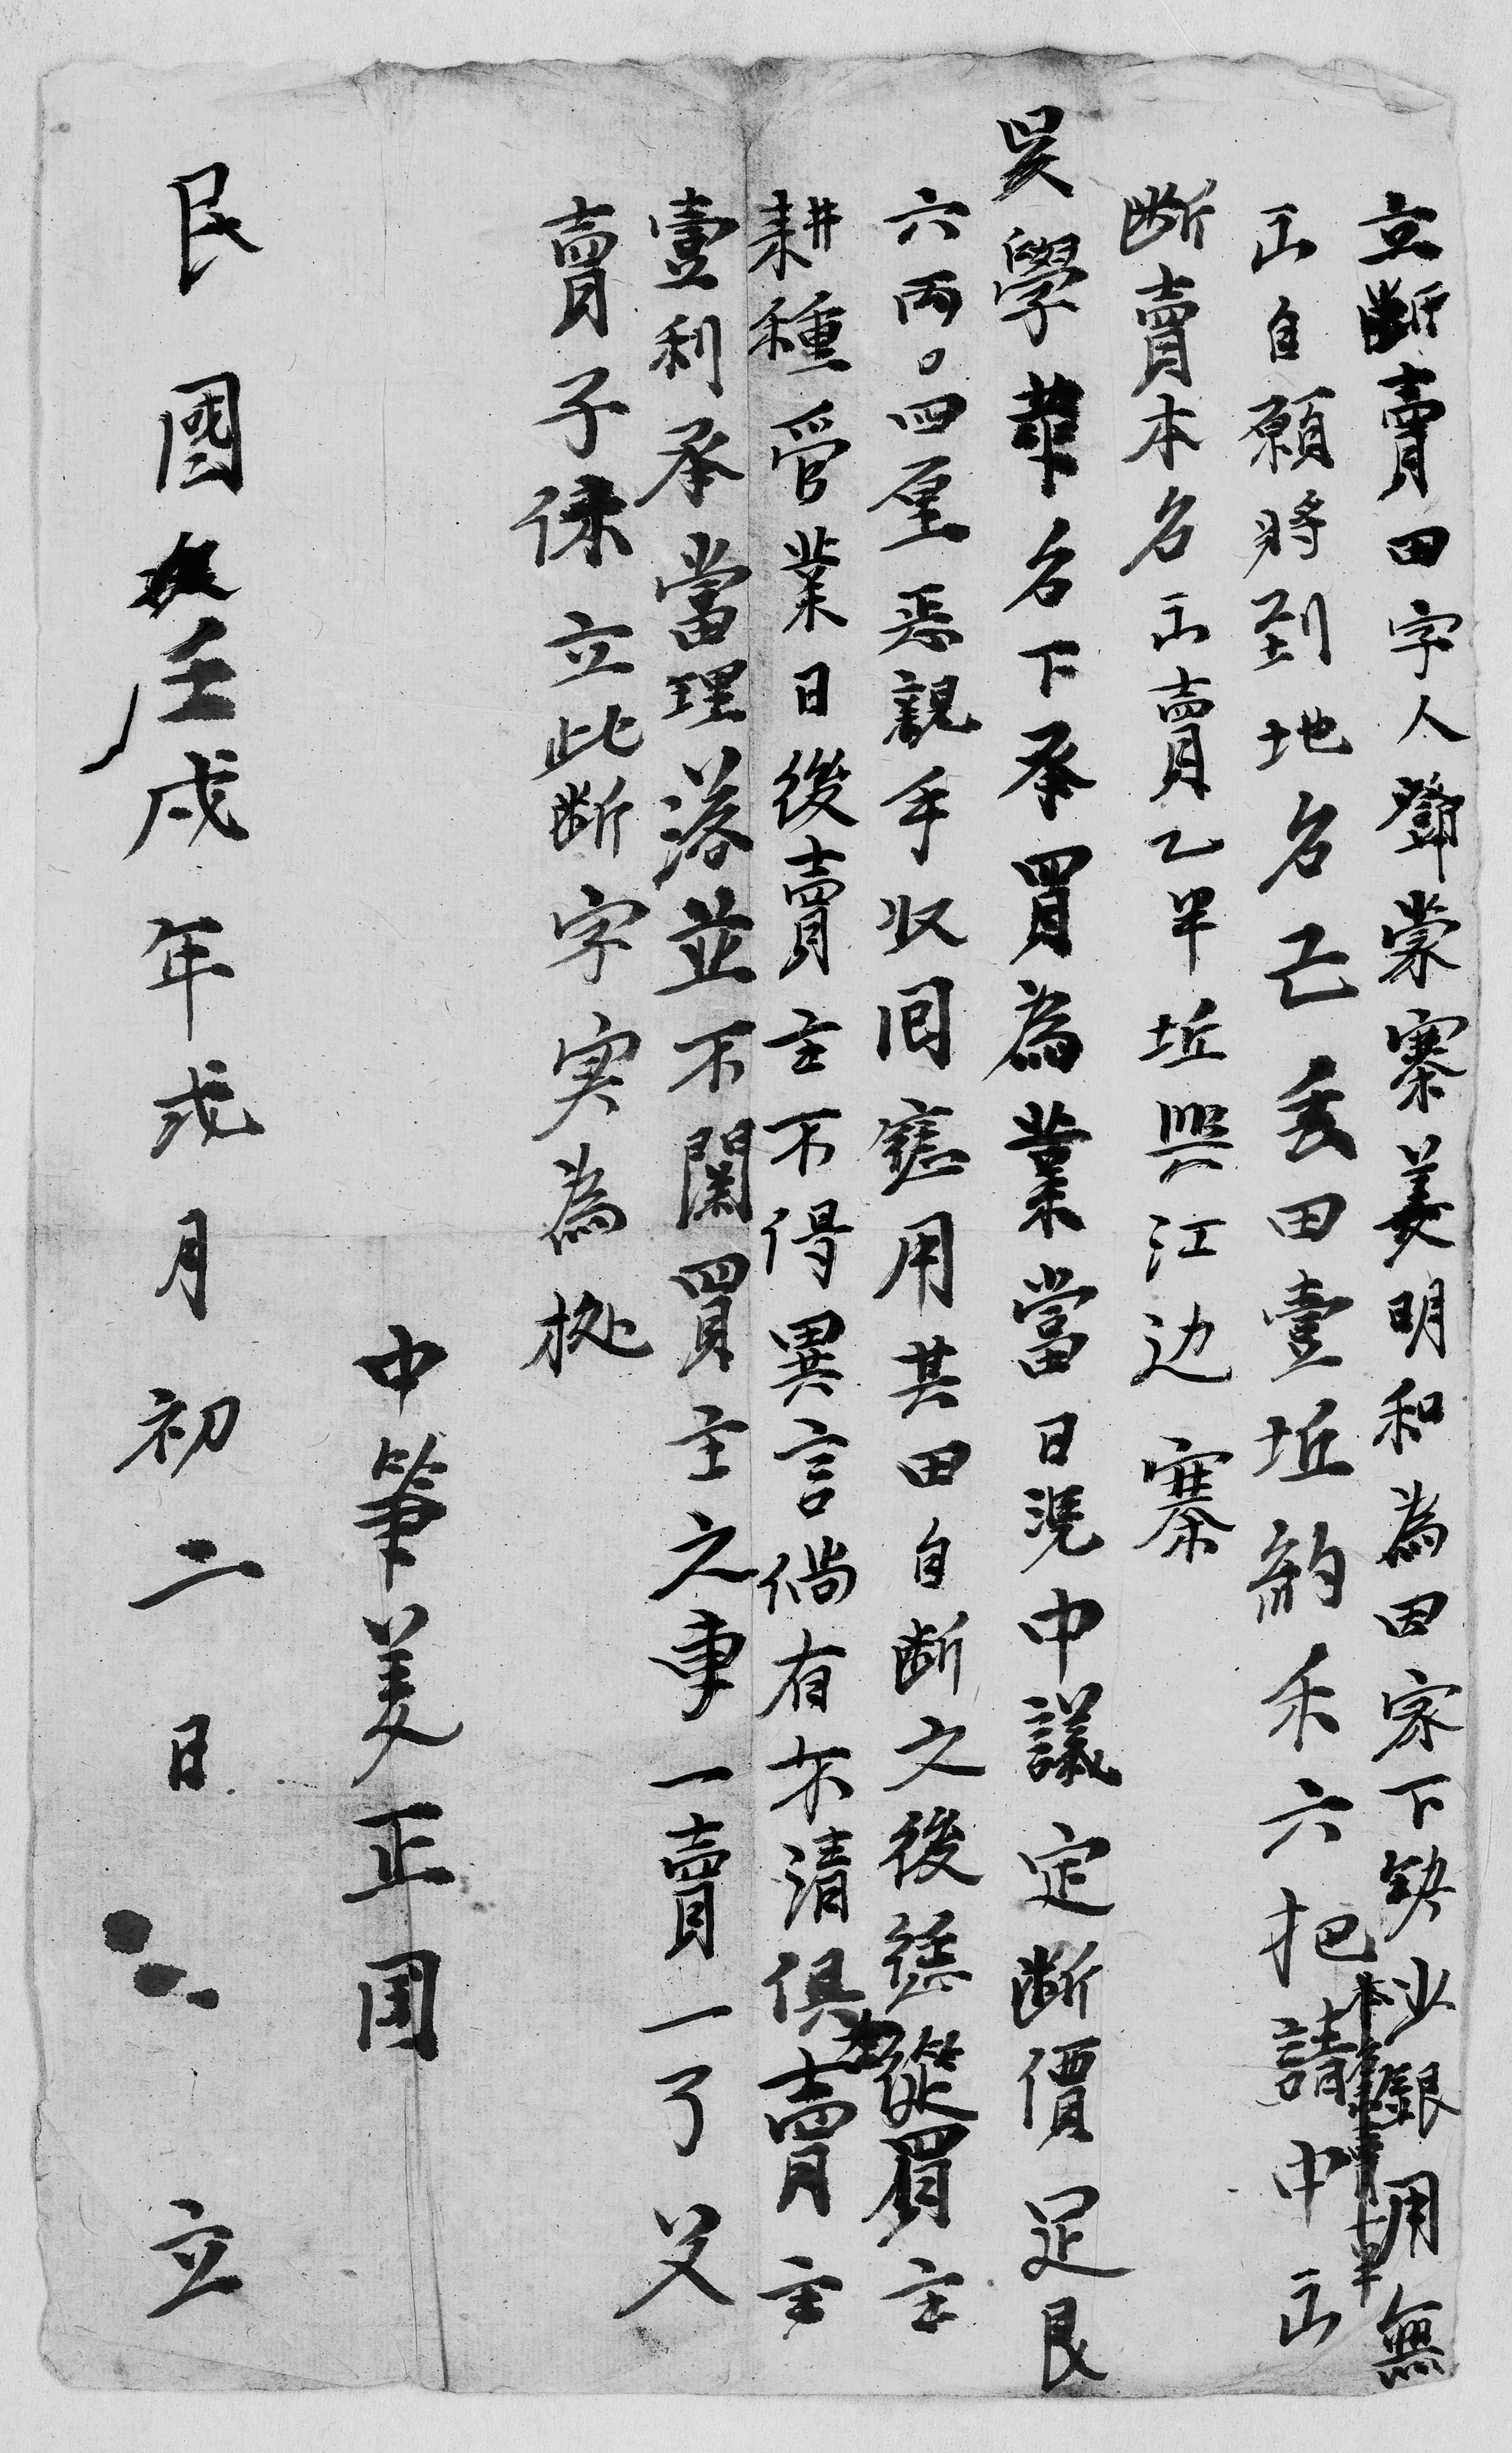 立斷賣田字人鄧蒙寨姜明和為因家下缺少銀用無
出自願將到地名田壹坵約禾六把請中出
断賣本名出賣乙半坵與江边寨
吴學華名下承買為業當日憑中議定断價足艮
六両〇四厘悉親手收囬應用其田自断之後慿從買主
耕種管業日後賣主不得異言倘有不清俱為賣主
壹利承當理落並不関買主之事一賣一了父
賣子休立此断字实為㨿
中筆姜正国
民國壬戌年弍月初二日立